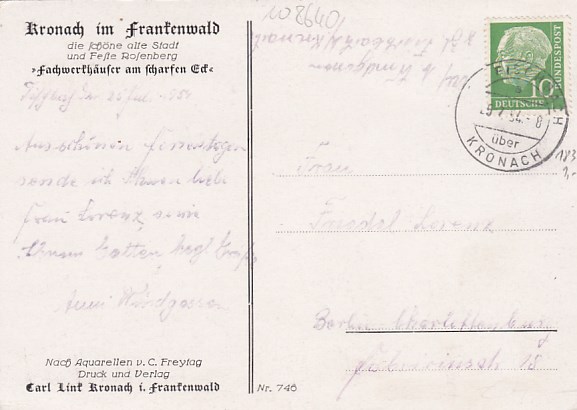 Kronach im Frankenwald
die schöne alte Stadt
und Feste Rosenberg
»Fachwerkhäuser am scharfen Eck«
1954
Aus schönen Ferientagen
sende ich Ihnen liebe
Frau Lorenz, sowie
Ihrem Gatten herzl. Grüße
Anni Windgassen
Nach Aquarellen v. C. Freytag
Druck und Verlag
Carl Link Kronach i. Frankenwald
Nr. 746
108640
DEUTSCHE BUNDESPOST
10
54.-8
über
KRONACH
183
3,-
Frau
Friedel Lorenz
Berlin Charlottenburg
18